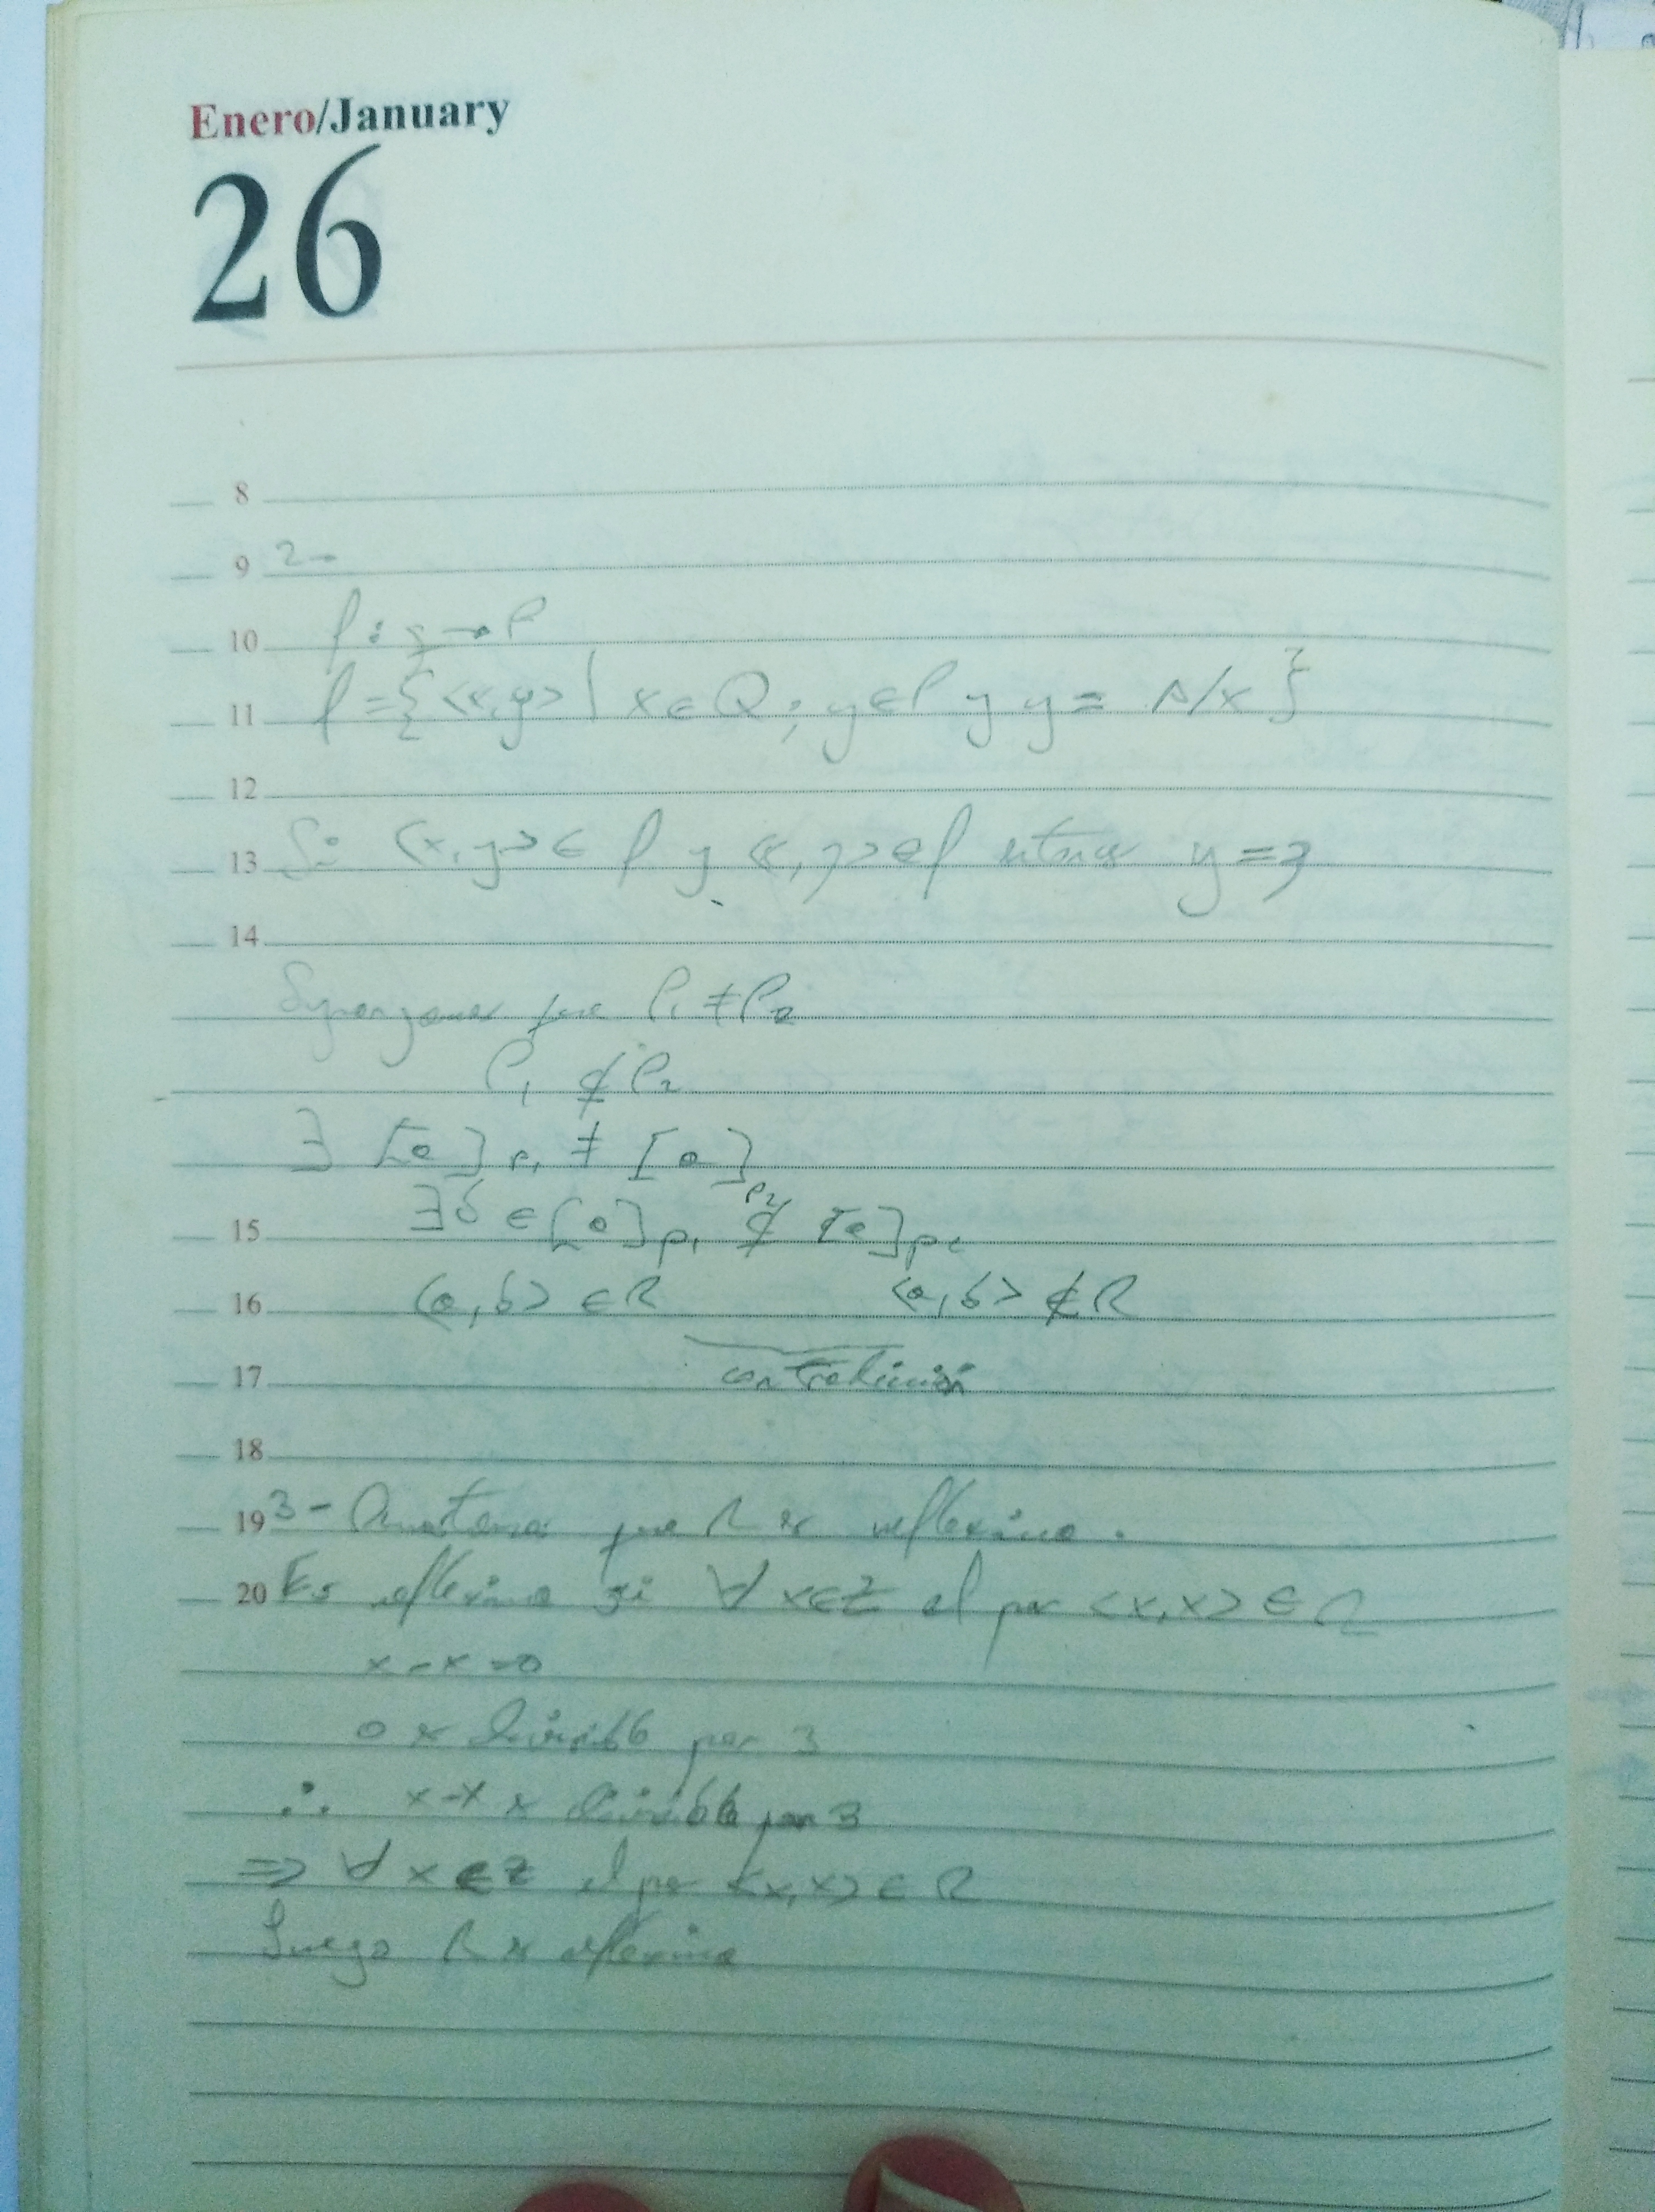 Enero/January
26
8
9 2-
10 f: → P
11 f = {<x,y> | x ∈ Q; y ∈ P y y = A/x}
12
13 Si <x,y> ∈ f y <x,z> ∈ f entonces y = z
14
Supongamos que P₁ ≠ P₂
P₁ ⊄ P₂
∃ [a]P₁ ≠ [a]P₂
15 ∃b ∈ [a]P₁ ∉ [a]P₂
16 <a,b> ∈ R <a,b> ∉ R
17 contradicción
18
19 3- que R es reflexiva.
20 Es reflexiva si ∀ x∈Z el par <x,x> ∈ R
x-x=0
0 es divisible por 3
∴ x-x es divisible por 3
⇒ ∀ x∈Z el par <x,x> ∈ R
Luego R es reflexiva